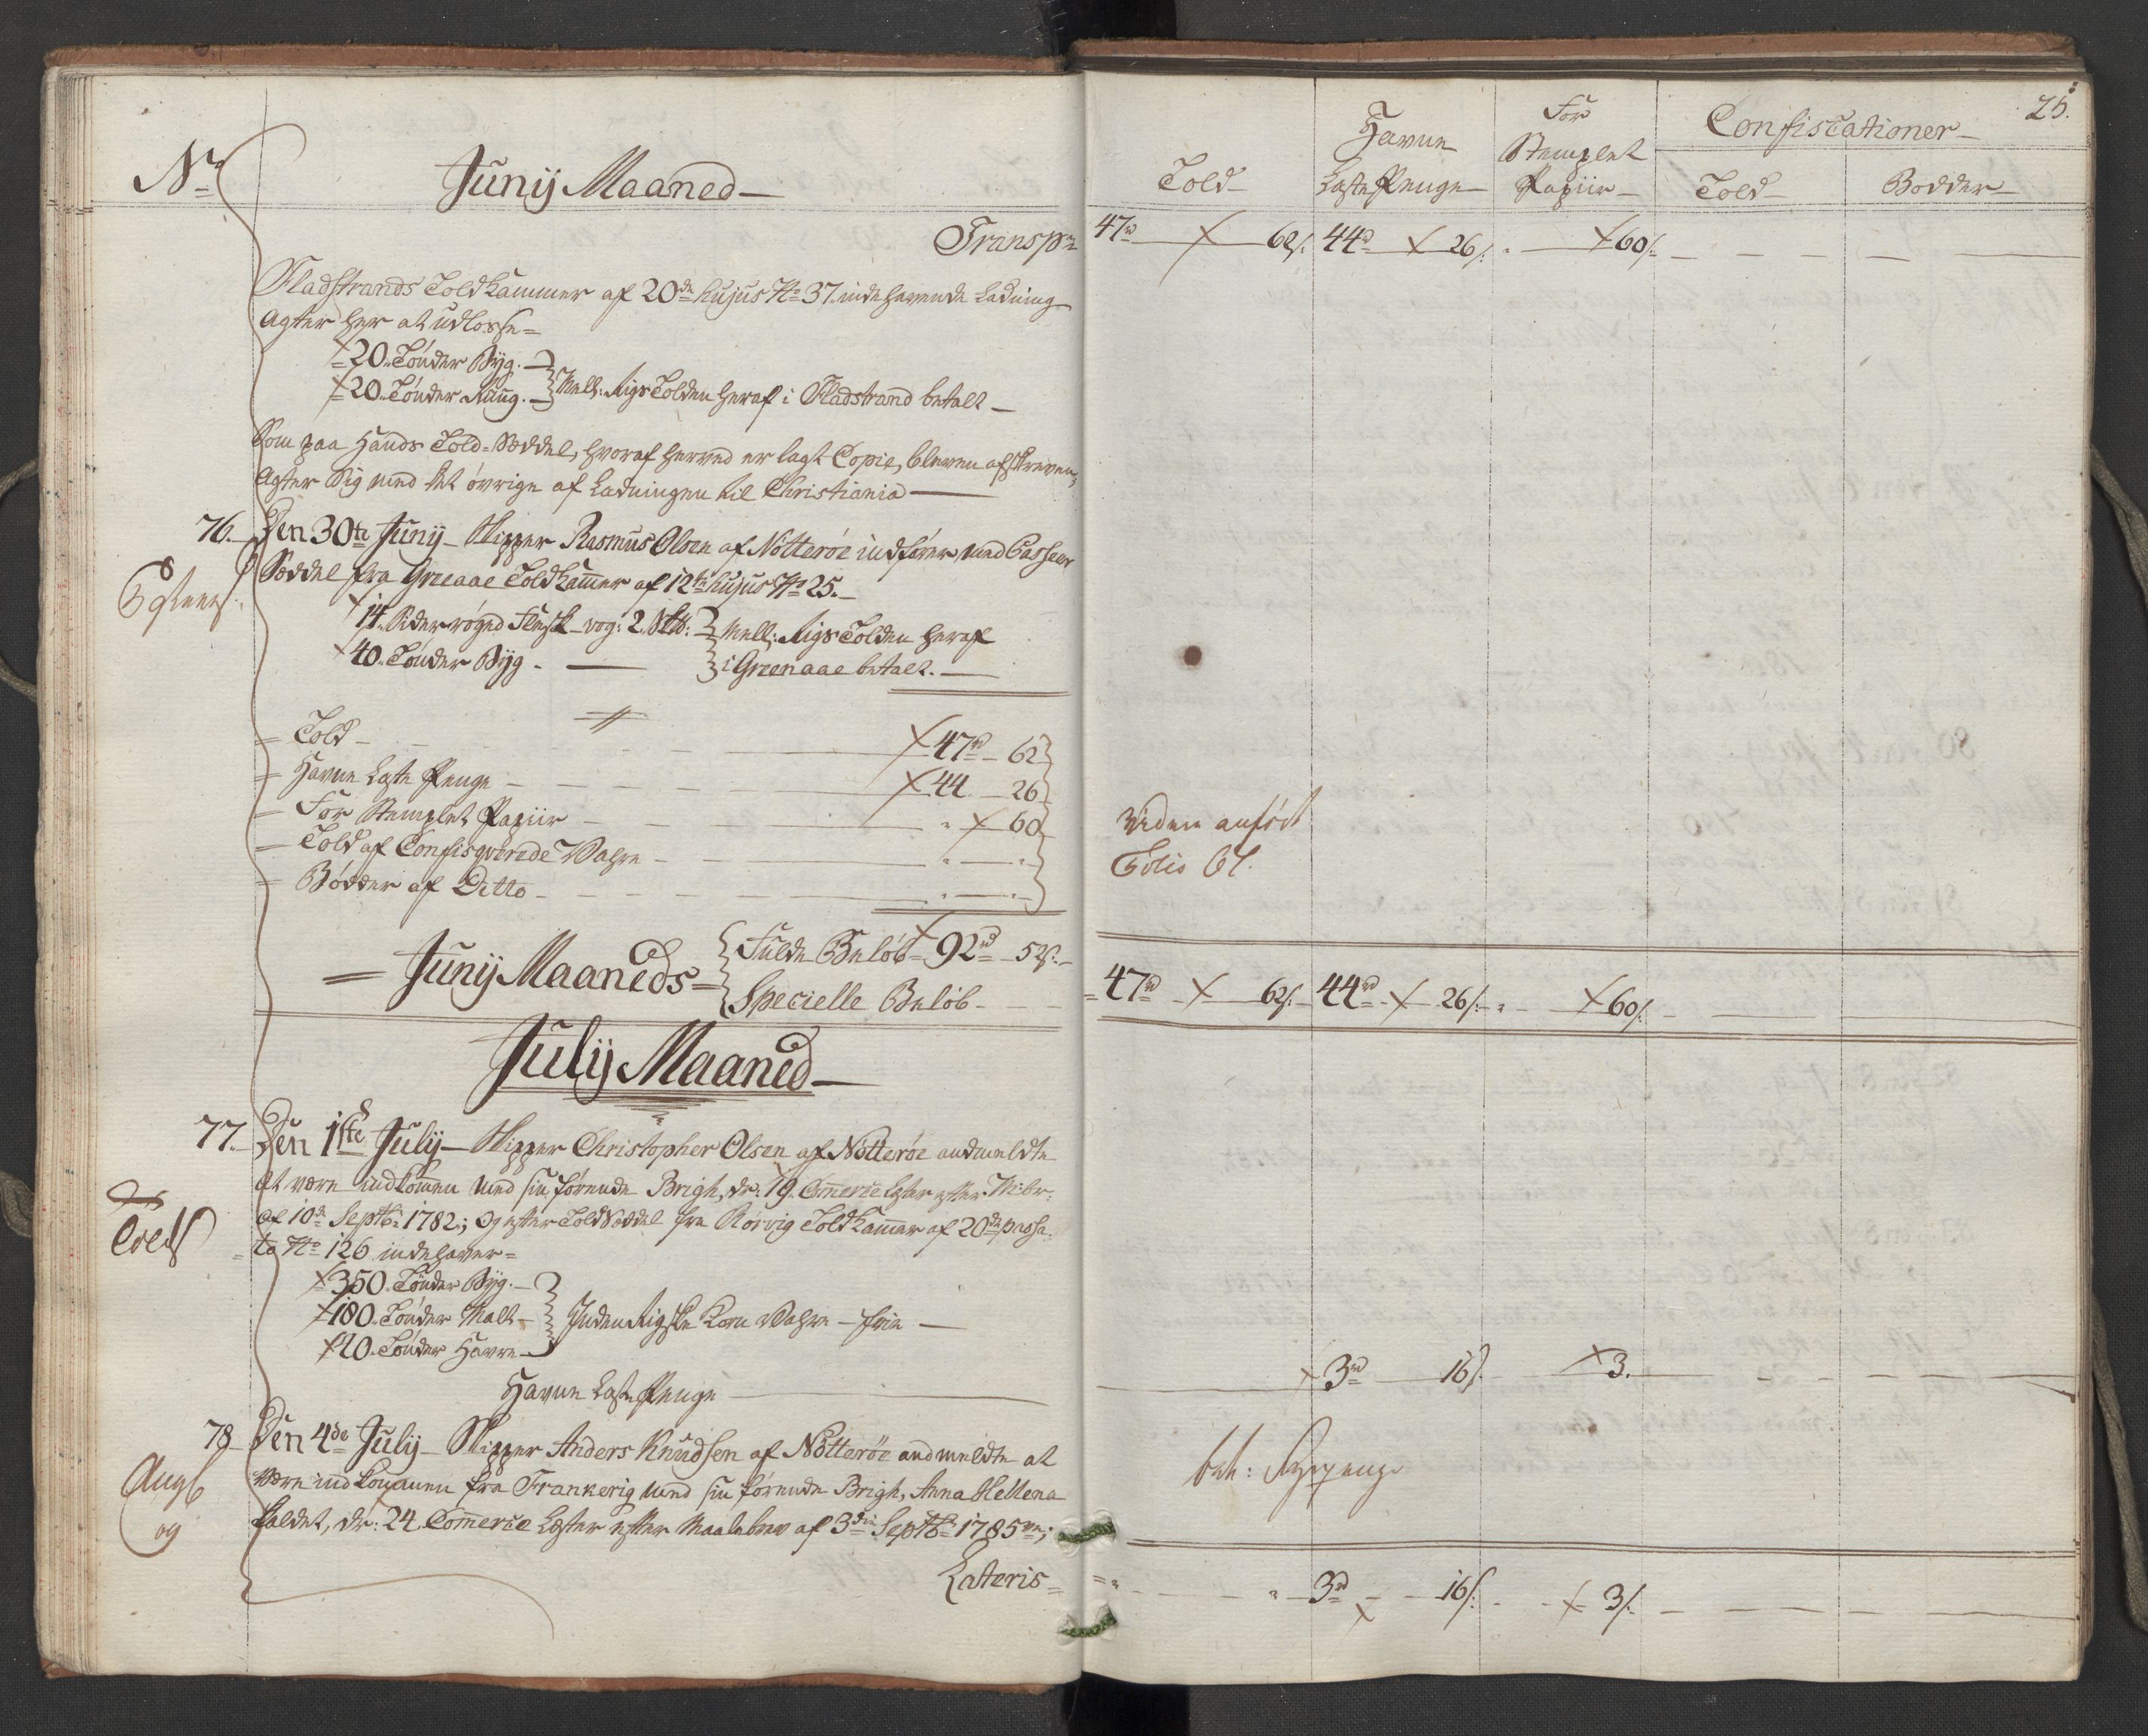 No
Junij Maaned
Transp:
Fladstrands Told Kammer af 20de hujus No 37. indehavende Ladning
Agter her at udlosse =
20. Tønder Byg.
20. Tønder Rug. Mell: Rigs Tolden heraf i Fladstrand betalt
Som paa Hands Told-Seddel, hvoraf herved er lagt Copie, bleven afskreven,
Agter Sig med det øvrige af Ladningen til Christiania
76. Den 30te Junij Skipper Rasmus Olsen af Nøtterøe indfører med Passeer
Seddel fra Greeaae Told Kammer af 12te hujus No 25.
14. Sider røged Flesk vog: 2. Mell: Rigs Tolden heraf
40. Tønder Byg i Greenaae betalt.
Told 47rd 62
Havne Laste Penge 44 26
For Stemplet Papiir " 60
Told af Confisqverede Vahre " "
Bødder af Ditto " "
Junij Maaneds Fulde Beløb 92rd 52s.
Specielle Beløb
Julij Maaned
77. Den 1ste Julij Skipper Christopher Olsen af Nøtterøe andmeldte
at være indkommen med sin førende Brigh, dr: 19. Commerce Lester efter M:br:
af 10de Septb: 1782; og efter Told Seddel fra Rørvig Told Kammer af 20de passa-
to No 126 indehaver =
350. Tønder Byg.
180. Tønder Malt Inden Rigske Korn Vahre - frie
40. Tønder Havre
Havne Laste Penge
78 Den 4de Julij Skipper Anders Knudsen af Nøtterøe andmeldte at
være indkommen fra Frankerig med sin førende Brigh, Anna Hellena
kaldet, dr: 24. Commerce Lester efter Maalebrev af 3die Septb: 1785ve;
og
Lateris
25.
Told
Havne
Laste Penge
For
Stemplet
Papiir
Confiscationer
Told
Bødder
47rd 62s. 44rd 26s. " 60s.
Videre anført
Folio 61.
47rd 62s. 44rd 26s. " 60s.
3rd 16s. 3.
" 3rd 16s. 3s.